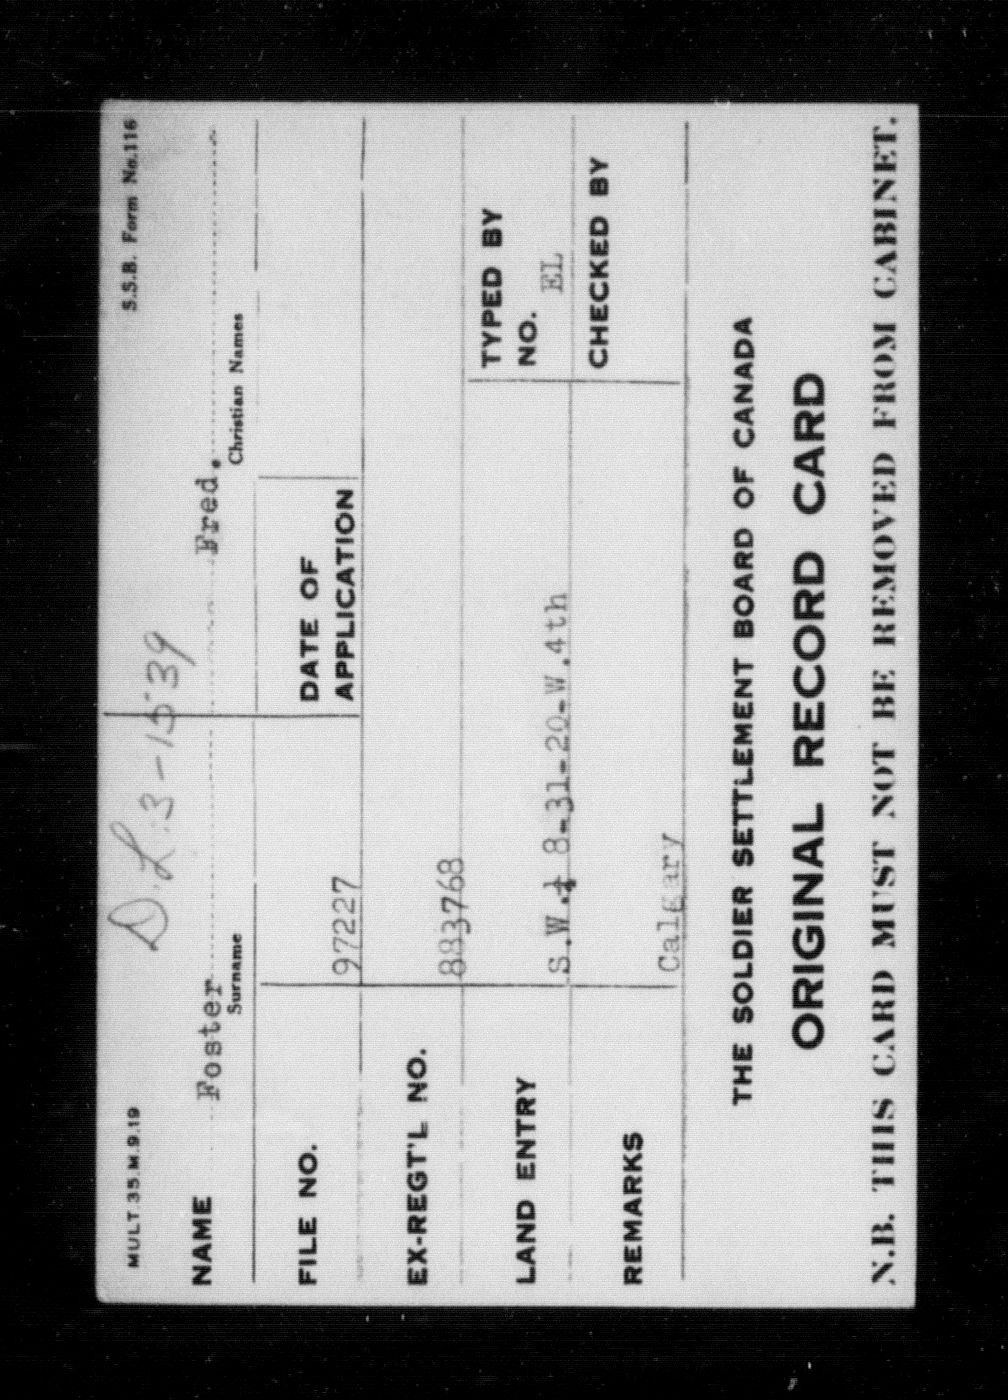 MULT 35.M.9.19
S.S.B. Form No.116
D.L. 3-15-39
NAME Foster Fred.
Surname Christian Names
FILE NO. 97227 DATE OF APPLICATION
EX-REGT'L NO. 883768
LAND ENTRY S.W.¼ 8-31-20-W.4th
TYPED BY
NO. EL
REMARKS Calgary
CHECKED BY
THE SOLDIER SETTLEMENT BOARD OF CANADA
ORIGINAL RECORD CARD
N.B. THIS CARD MUST NOT BE REMOVED FROM CABINET.